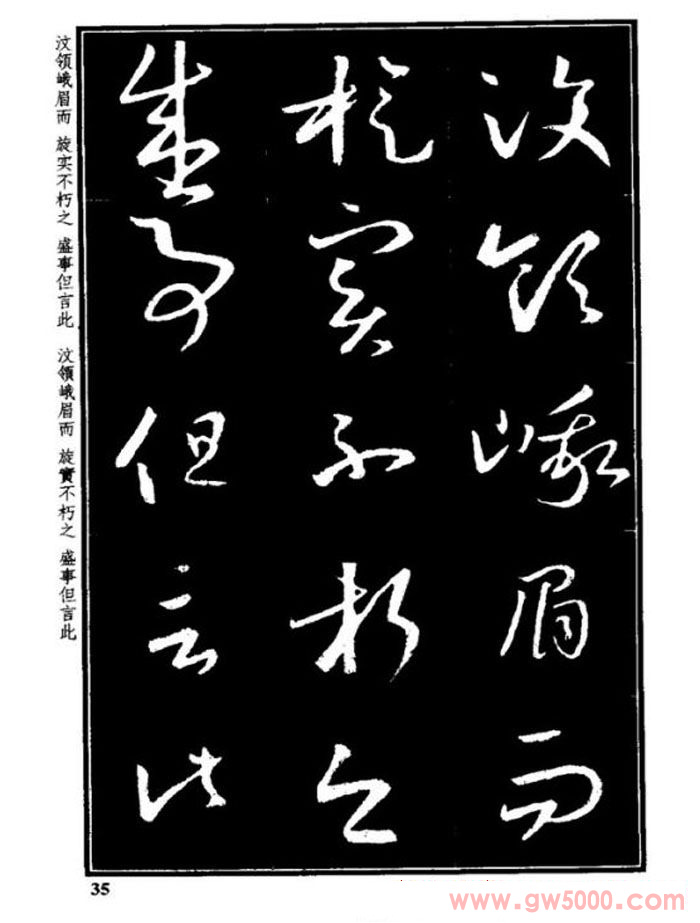 汶領峨眉而
旋實不朽之
盛事但言此
汶領峨眉而 旋实不朽之 盛事但言此 汶領峨眉而 旋實不朽之 盛事但言此
35
www.gw5000.com